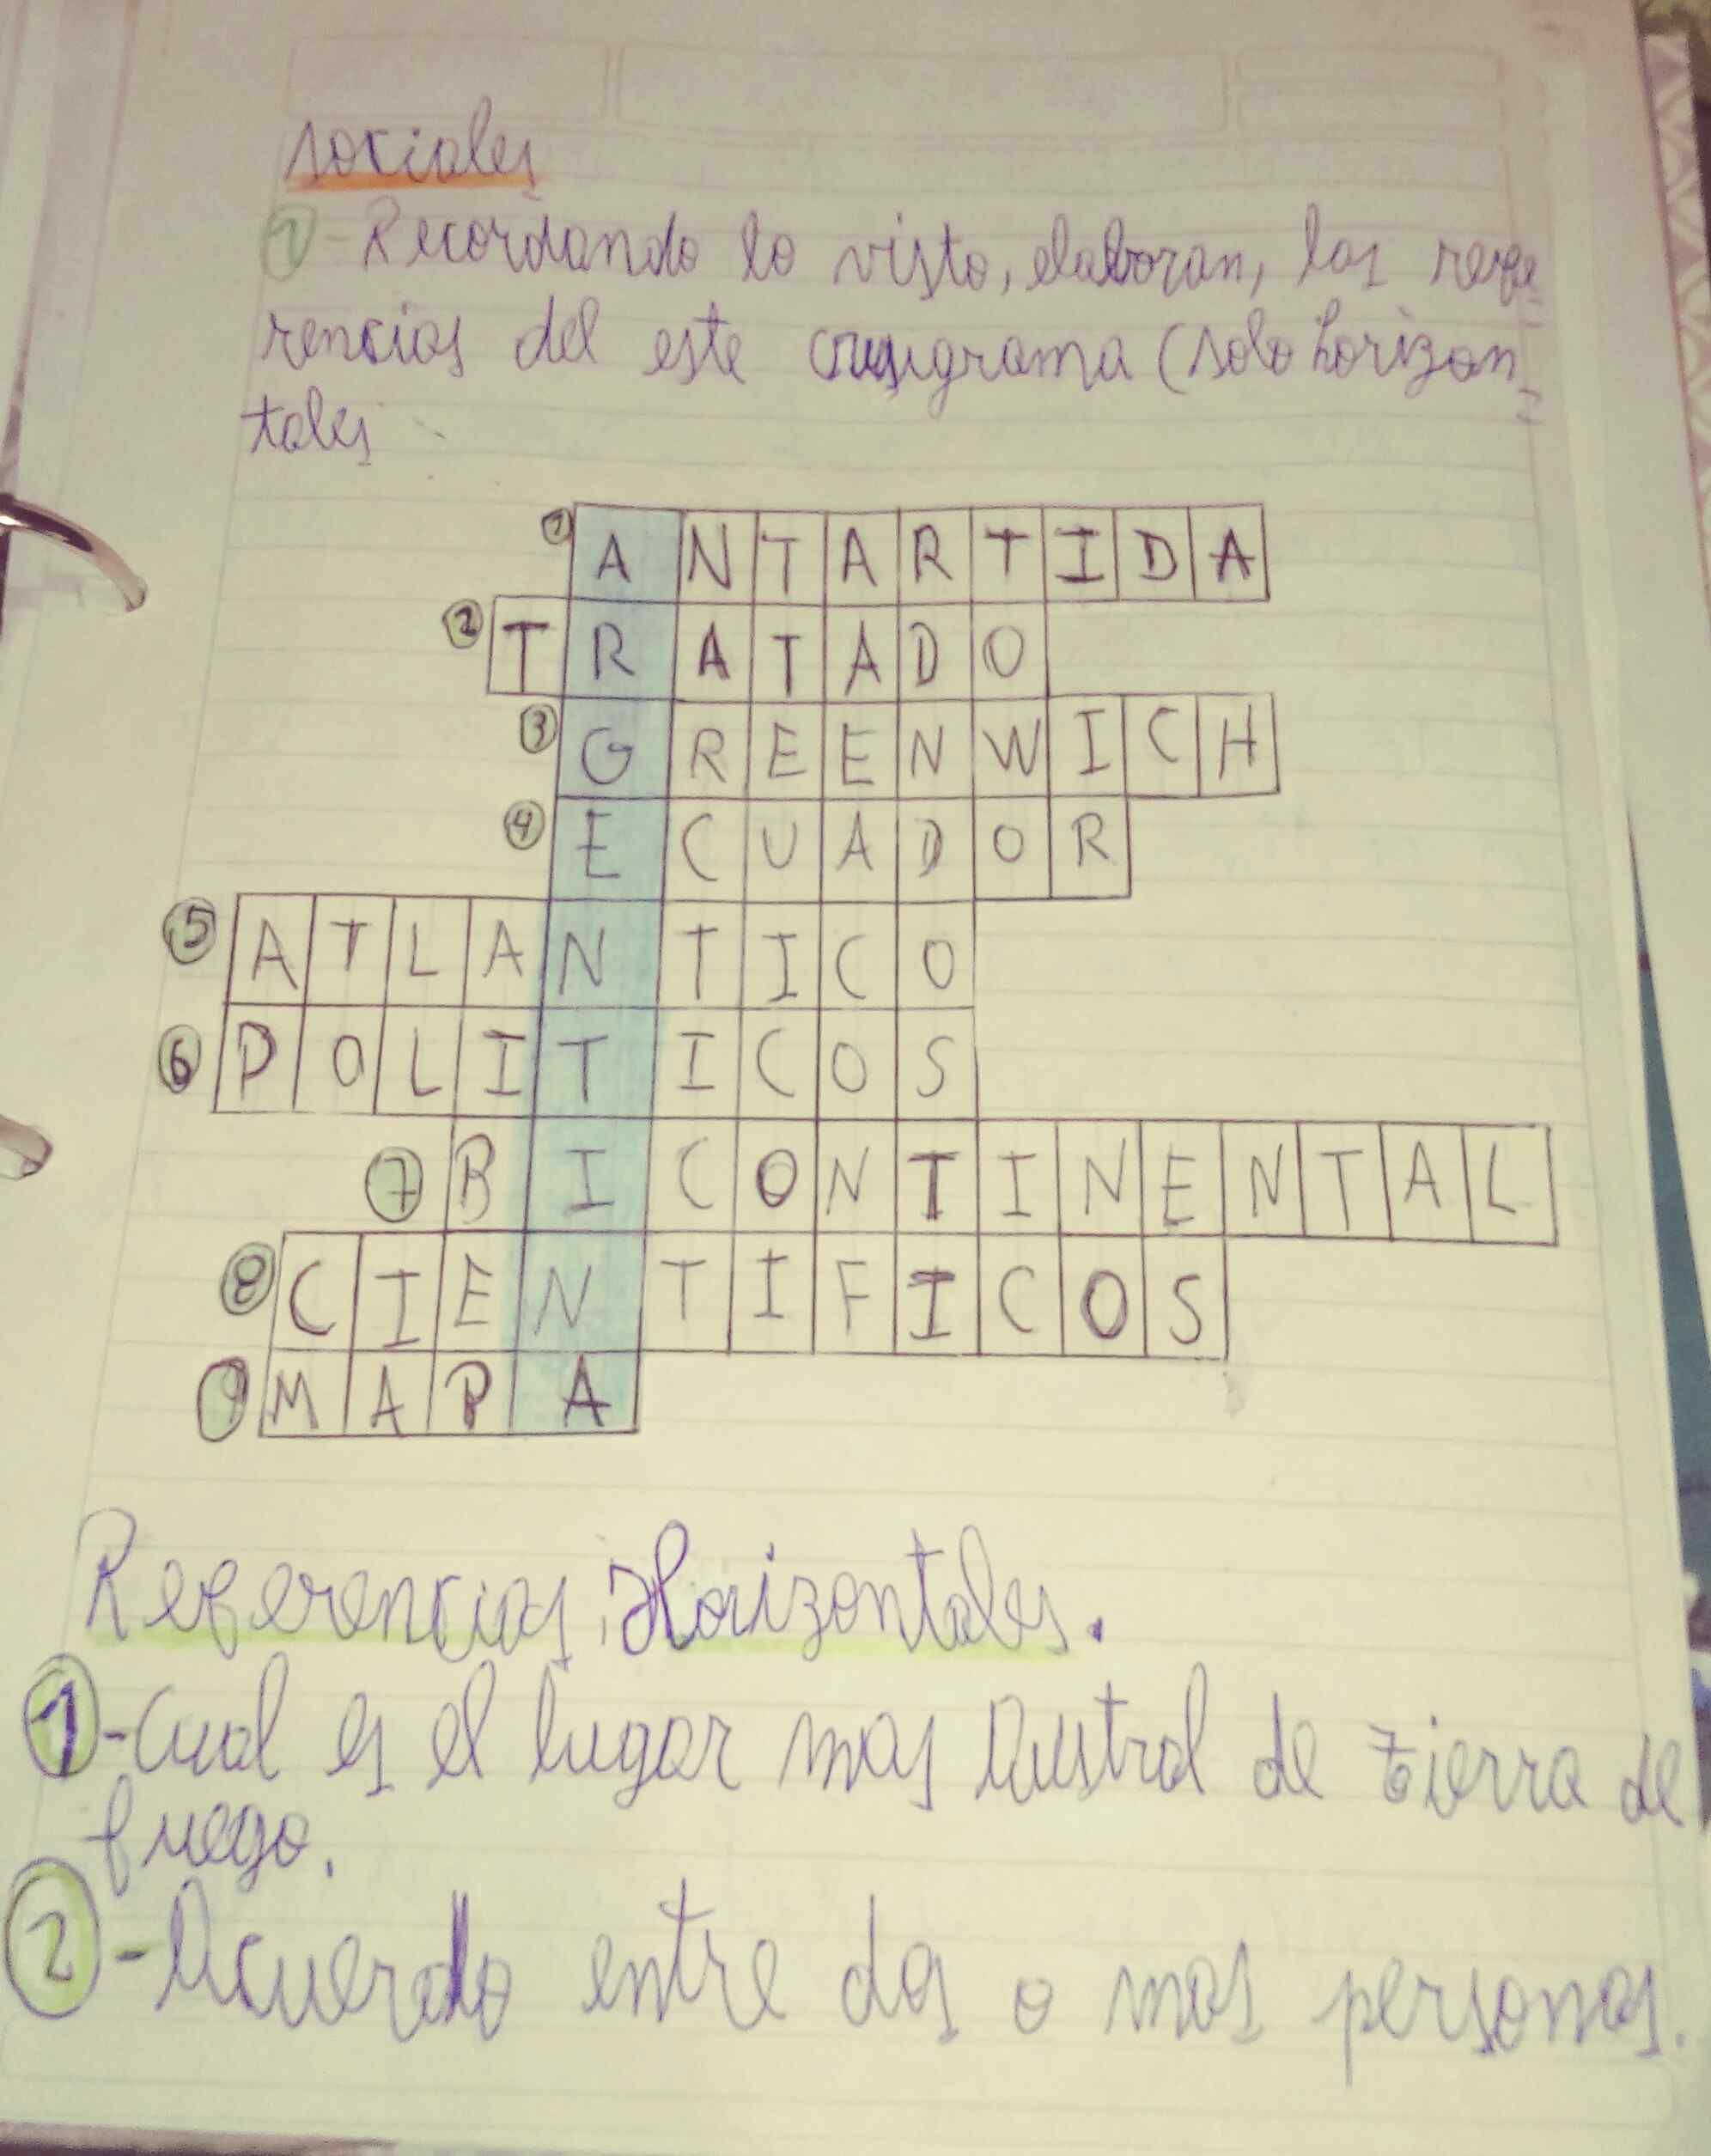 sociales
1-Recordando lo visto, elaboran, las refe-
rencias del este crusigrama (solo horizon-
tales
1 ANTARTIDA
2 TRATADO
3 GREENWICH
4 ECUADOR
5 ATLANTICO
6 POLITICOS
7 BICONTINENTAL
8 CIENTIFICOS
9 MAPA
Referencias: Horizontales.
1-Cual es el lugar mas Austral de tierra de
fuego.
2-Acuerdo entre dos o mas personas.